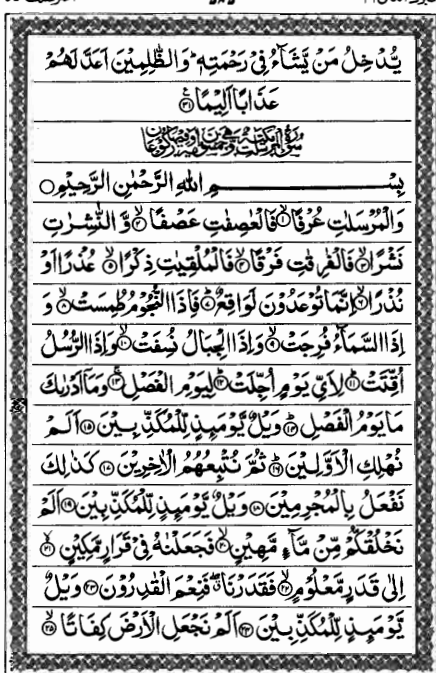 يُّدْخِلُ مَنْ يَّشَآءُ فِيْ رَحْمَتِهٖ ؕ وَالظّٰلِمِيْنَ اَعَدَّ لَهُمْ
عَذَابًا اَلِيْمًا ﴿۳۱﴾
بِسْمِ اللهِ الرَّحْمٰنِ الرَّحِيْمِ ○
وَالْمُرْسَلٰتِ عُرْفًا ﴿۱﴾ فَالْعٰصِفٰتِ عَصْفًا ﴿۲﴾ وَّ النّٰشِرٰتِ
نَشْرًا ﴿۳﴾ فَالْفٰرِقٰتِ فَرْقًا ﴿۴﴾ فَالْمُلْقِيٰتِ ذِكْرًا ﴿۵﴾ عُذْرًا اَوْ
نُذْرًا ﴿۶﴾ اِنَّمَا تُوْعَدُوْنَ لَوَاقِعٌ ﴿۷﴾ فَاِذَا النُّجُوْمُ طُمِسَتْ ﴿۸﴾ وَ
اِذَا السَّمَآءُ فُرِجَتْ ﴿۹﴾ وَاِذَا الْجِبَالُ نُسِفَتْ ﴿۱۰﴾ وَاِذَا الرُّسُلُ
اُقِّتَتْ ﴿۱۱﴾ لِاَيِّ يَوْمٍ اُجِّلَتْ ﴿۱۲﴾ لِيَوْمِ الْفَصْلِ ﴿۱۳﴾ وَمَاۤ اَدْرٰىكَ
مَا يَوْمُ الْفَصْلِ ﴿۱۴﴾ وَيْلٌ يَّوْمَىِٕذٍ لِّلْمُكَذِّبِيْنَ ﴿۱۵﴾ اَلَمْ
نُهْلِكِ الْاَوَّلِيْنَ ﴿۱۶﴾ ثُمَّ نُتْبِعُهُمُ الْاٰخِرِيْنَ ﴿۱۷﴾ كَذٰلِكَ
نَفْعَلُ بِالْمُجْرِمِيْنَ ﴿۱۸﴾ وَيْلٌ يَّوْمَىِٕذٍ لِّلْمُكَذِّبِيْنَ ﴿۱۹﴾ اَلَمْ
نَخْلُقْكُّمْ مِّنْ مَّآءٍ مَّهِيْنٍ ﴿۲۰﴾ فَجَعَلْنٰهُ فِيْ قَرَارٍ مَّكِيْنٍ ﴿۲۱﴾
اِلٰى قَدَرٍ مَّعْلُوْمٍ ﴿۲۲﴾ فَقَدَرْنَا ۖ فَنِعْمَ الْقٰدِرُوْنَ ﴿۲۳﴾ وَيْلٌ
يَّوْمَىِٕذٍ لِّلْمُكَذِّبِيْنَ ﴿۲۴﴾ اَلَمْ نَجْعَلِ الْاَرْضَ كِفَاتًا ﴿۲۵﴾